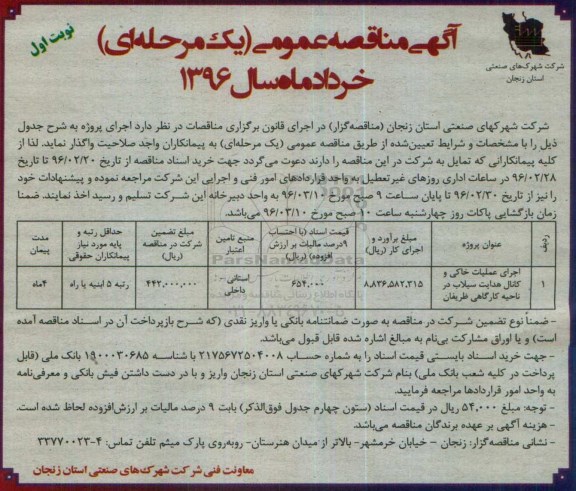 نوبت اول
آگهی مناقصه عمومی (یک مرحله‌ای)
خرداد ماه سال ۱۳۹۶
شرکت شهرک‌های صنعتی
استان زنجان
شرکت شهرکهای صنعتی استان زنجان (مناقصه‌گزار) در اجرای قانون برگزاری مناقصات در نظر دارد اجرای پروژه به شرح جدول
ذیل را با مشخصات و شرایط تعیین‌شده از طریق مناقصه عمومی (یک مرحله‌ای) به پیمانکاران واجد صلاحیت واگذار نماید. لذا از
کلیه پیمانکارانی که تمایل به شرکت در این مناقصه را دارند دعوت می‌گردد جهت خرید اسناد مناقصه از تاریخ ۹۶/۰۲/۲۰ تا تاریخ
۹۶/۰۲/۲۸ در ساعات اداری روزهای غیرتعطیل به واحد قراردادهای امور فنی و اجرایی این شرکت مراجعه نموده و پیشنهادات خود
را نیز از تاریخ ۹۶/۰۲/۳۰ تا پایان ساعت ۹ صبح مورخ ۹۶/۰۳/۱۰ به واحد دبیرخانه این شرکت تسلیم و رسید اخذ نمایند. ضمناً
زمان بازگشایی پاکات روز چهارشنبه ساعت ۱۰ صبح مورخ ۹۶/۰۳/۱۰ می‌باشد.
ردیف | عنوان پروژه | مبلغ برآورد و اجرای کار (ریال) | قیمت اسناد (با احتساب ۹درصد مالیات بر ارزش افزوده) (ریال) | منبع تامین اعتبار | مبلغ تضمین شرکت در مناقصه (ریال) | حداقل رتبه و پایه مورد نیاز پیمانکاران حقوقی | مدت پیمان
۱ | اجرای عملیات خاکی و کانال هدایت سیلاب در ناحیه کارگاهی طریفان | ۸،۸۳۶،۵۸۲،۳۱۵ | ۶۵۴،۰۰۰ | استانی داخلی | ۴۴۲،۰۰۰،۰۰۰ | رتبه ۵ ابنیه یا راه | ۴ماه
- ضمناً نوع تضمین شرکت در مناقصه به صورت ضمانتنامه بانکی یا واریز نقدی (که شرح بازپرداخت آن در اسناد مناقصه آمده
است) و یا اوراق مشارکت بی‌نام به مبالغ اشاره شده قابل قبول می‌باشد.
- جهت خرید اسناد بایستی قیمت اسناد را به شماره حساب ۲۱۷۵۶۷۲۵۰۴۰۰۸ با شناسه ۱۹۰۰۰۳۰۶۸۵ بانک ملی (قابل
پرداخت در کلیه شعب بانک ملی) بنام شرکت شهرکهای صنعتی استان زنجان واریز و با در دست داشتن فیش بانکی و معرفی‌نامه
به واحد امور قراردادها مراجعه فرمایید.
- توجه: مبلغ ۵۴،۰۰۰ ریال در قیمت اسناد (ستون چهارم جدول فوق‌الذکر) بابت ۹ درصد مالیات بر ارزش‌افزوده لحاظ شده است.
- هزینه آگهی بر عهده برندگان مناقصه می‌باشد.
- نشانی مناقصه‌گزار: زنجان – خیابان خرمشهر- بالاتر از میدان هنرستان- روبه‌روی پارک میثم تلفن تماس: ۴-۳۳۷۷۰۰۲۳
معاونت فنی شرکت شهرک‌های صنعتی استان زنجان